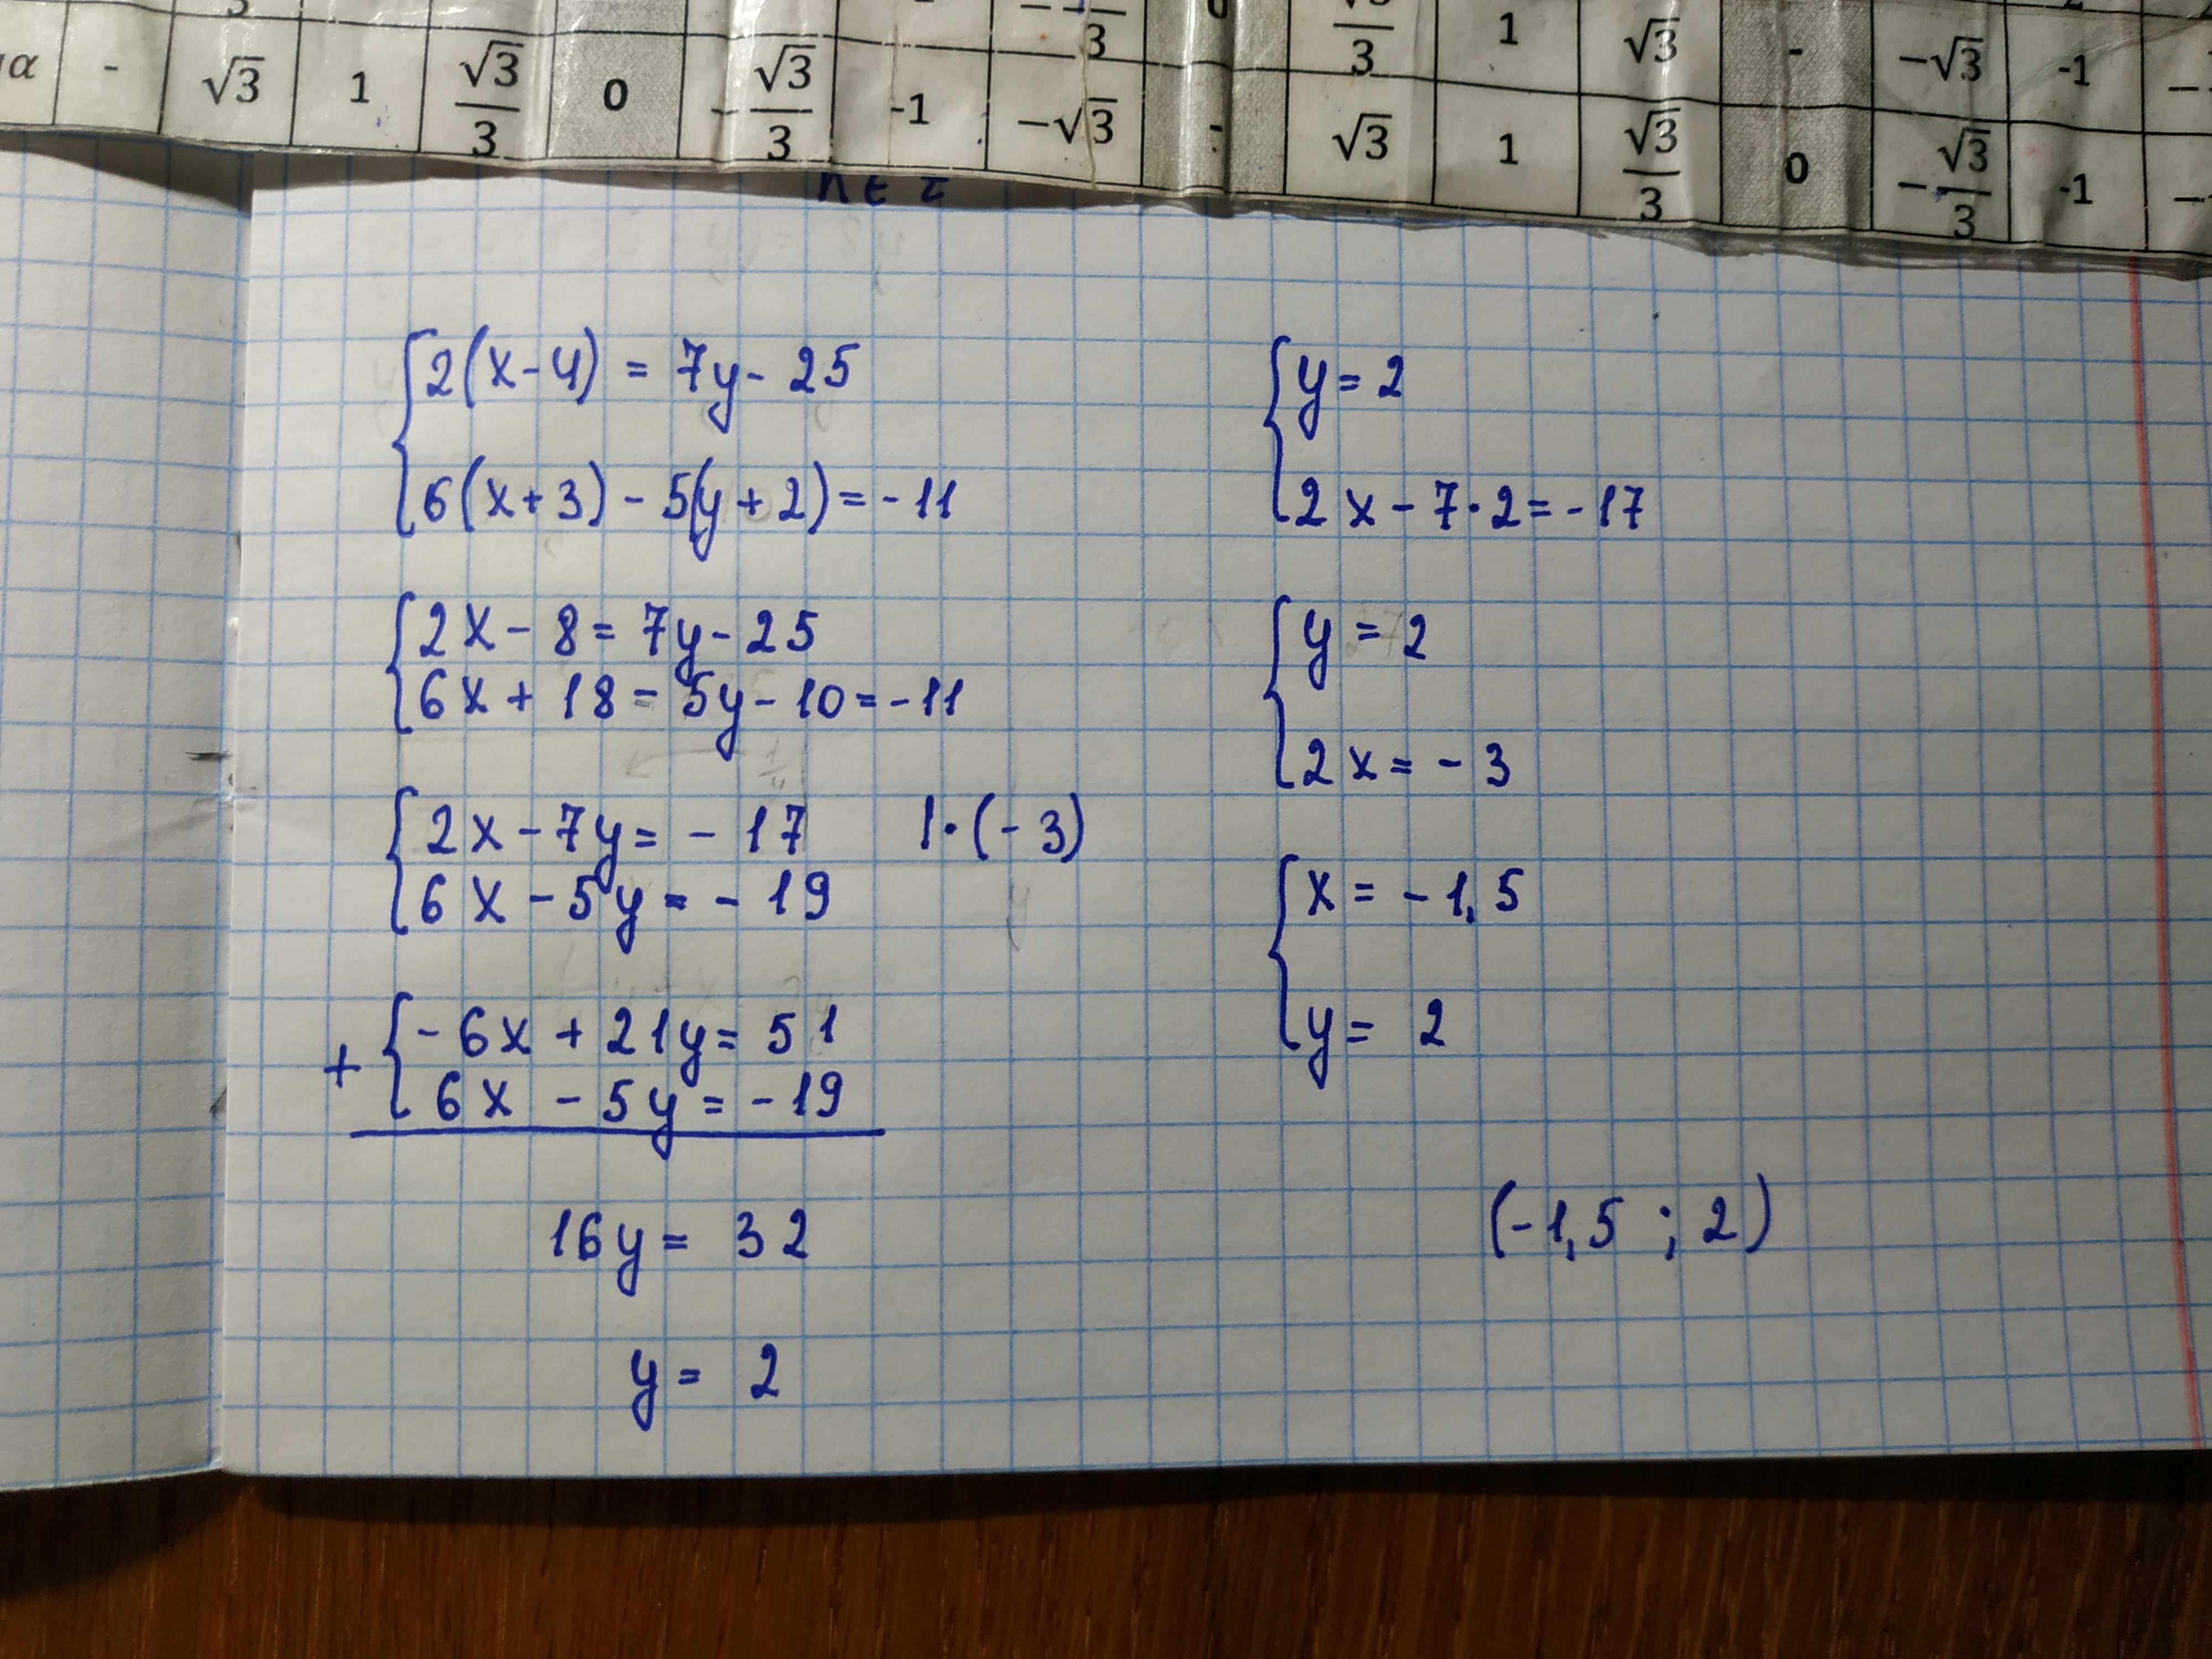 α - √3 1 √3/3 0 -√3/3 -1 -√3 - √3 1 √3/3 0 -√3/3 -1
√3/3 1 √3 - -√3 -1
{2(x-4) = 7y- 25
6(x+3) - 5(y+2) = -11
{2x - 8 = 7y - 25
6x + 18 = 5y - 10 = -11
{2x - 7y = - 17 |·(-3)
6x - 5y = - 19
+ {-6x + 21y = 51
6x - 5y = -19
16y = 32
y = 2
{y = 2
2x - 7·2 = -17
{y = 2
2x = - 3
{x = -1,5
y = 2
(-1,5 ; 2)